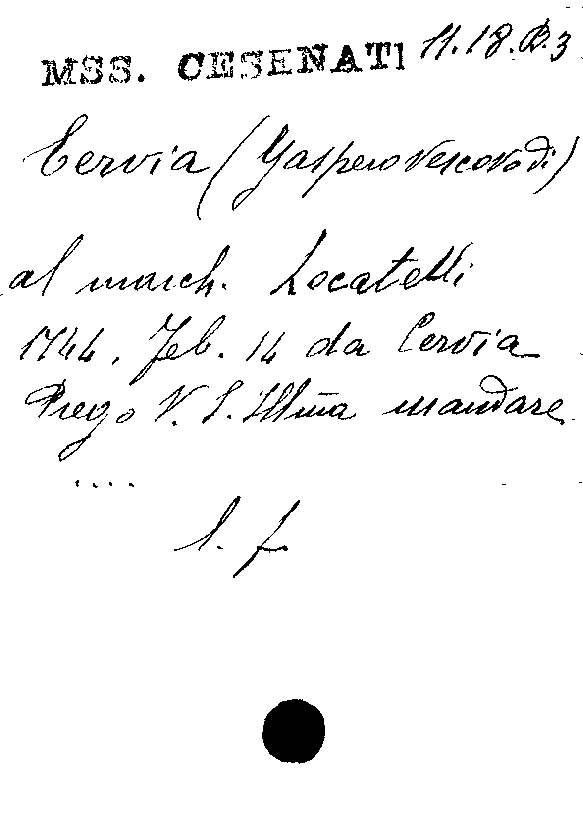 MSS. CESENATI 11.18.R.3
Cervia (Gaspero Vescovo di)
al march. Locatelli
1744. Feb. 14 da Cervia
Prego V. S. Illm̃a mandare
....
l. f.